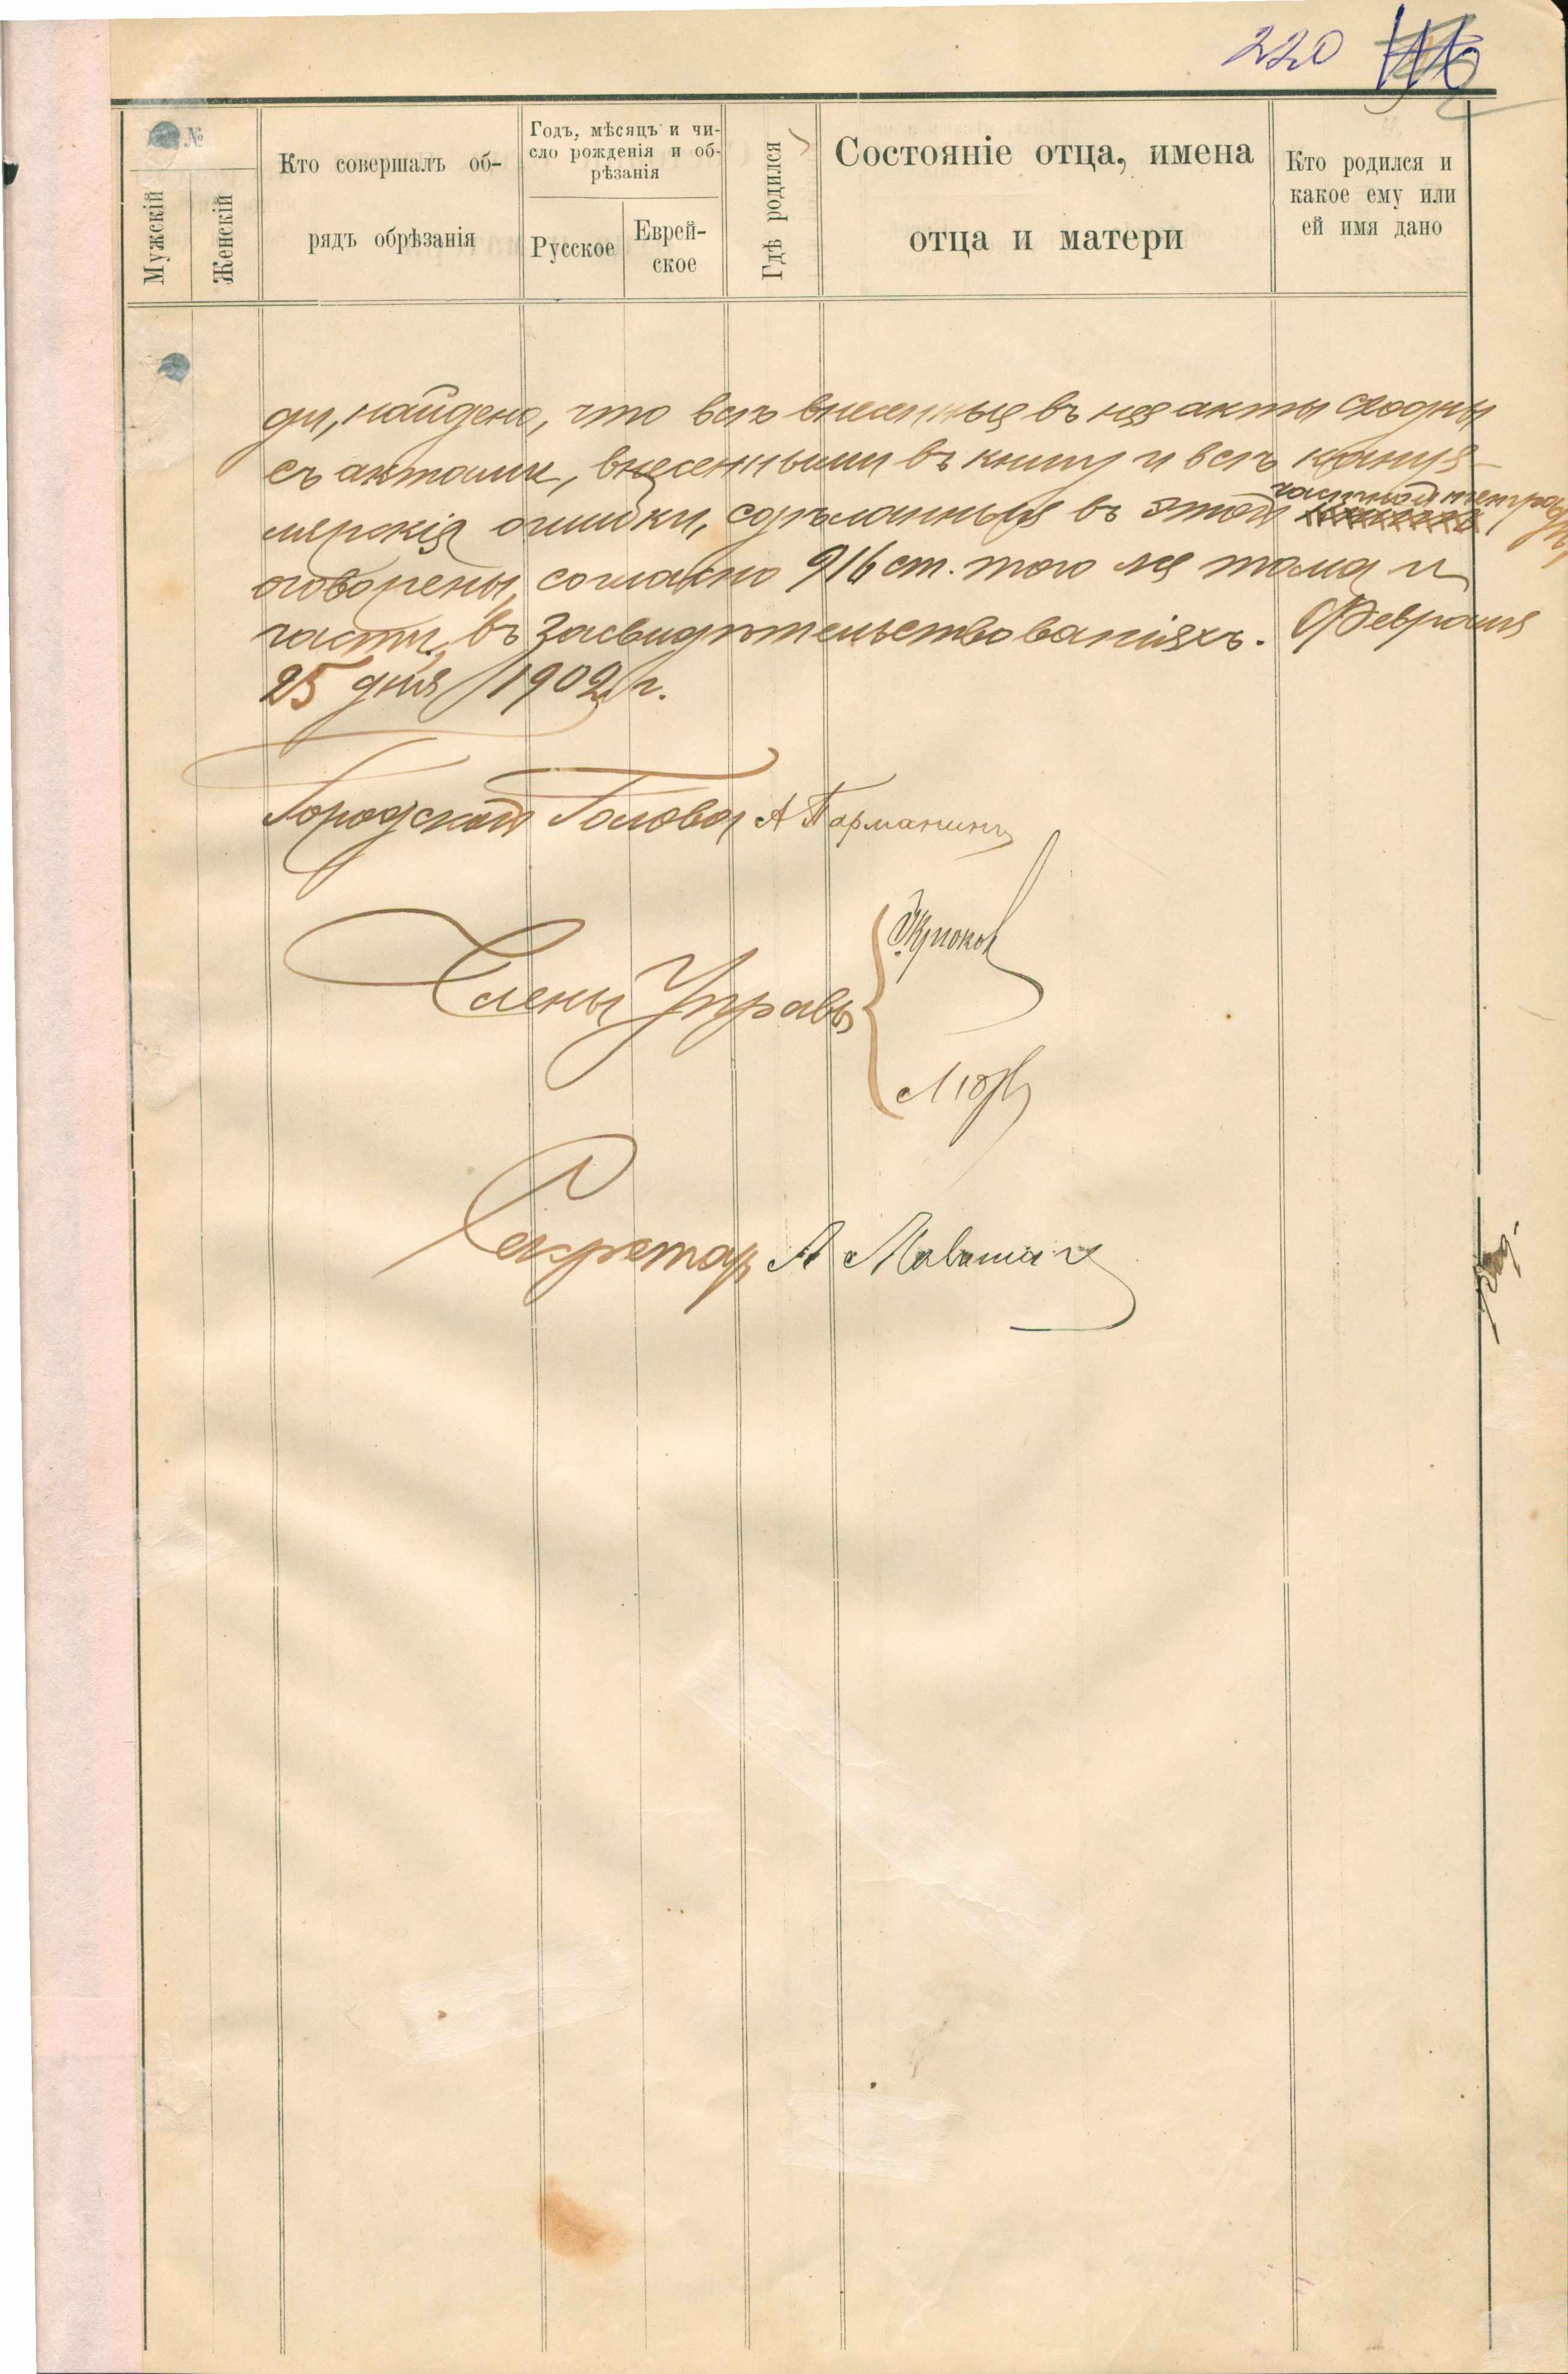 220
№
Мужскій
Женскій
Кто совершалъ об-
рядъ обрѣзанія
Годъ, мѣсяцъ и чи-
сло рожденія и об-
рѣзанія
Русское
Еврей-
ское
Гдѣ родился
Состояніе отца, имена
отца и матери
Кто родился и
какое ему или
ей имя дано
ди, найдено, что всѣ внесенныя въ нея акты сходны
съ актами, внесенными въ книгу и всѣ канце-
лярскія ошибки, сдѣланныя въ этой частной тетради,
оговорены, согласно 916 ст. того же тома и
части, въ засвидѣтельствованіяхъ. Февраля
25 дня 1902 г.
Городской Голова А
Члены Управы
Крюков
Секретарь А